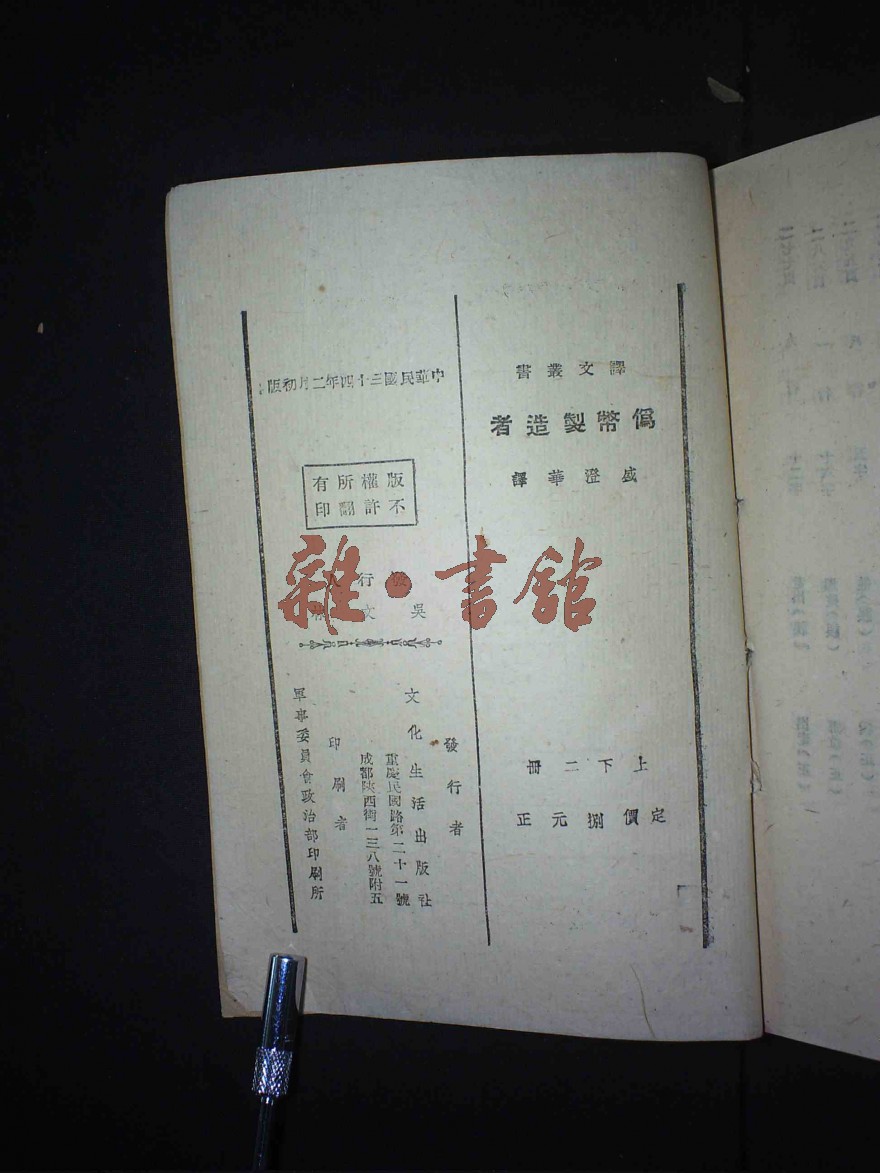 譯文叢書
僞幣製造者
盛澄華譯
上下二冊
定價捌元正
中華民國三十四年二月初版
版權所有
不許翻印
發行人
吳文林
發行者
文化生活出版社
重慶民國路第二十一號
成都陝西街一三八號附五
印刷者
軍事委員會政治部印刷所
雜·書館